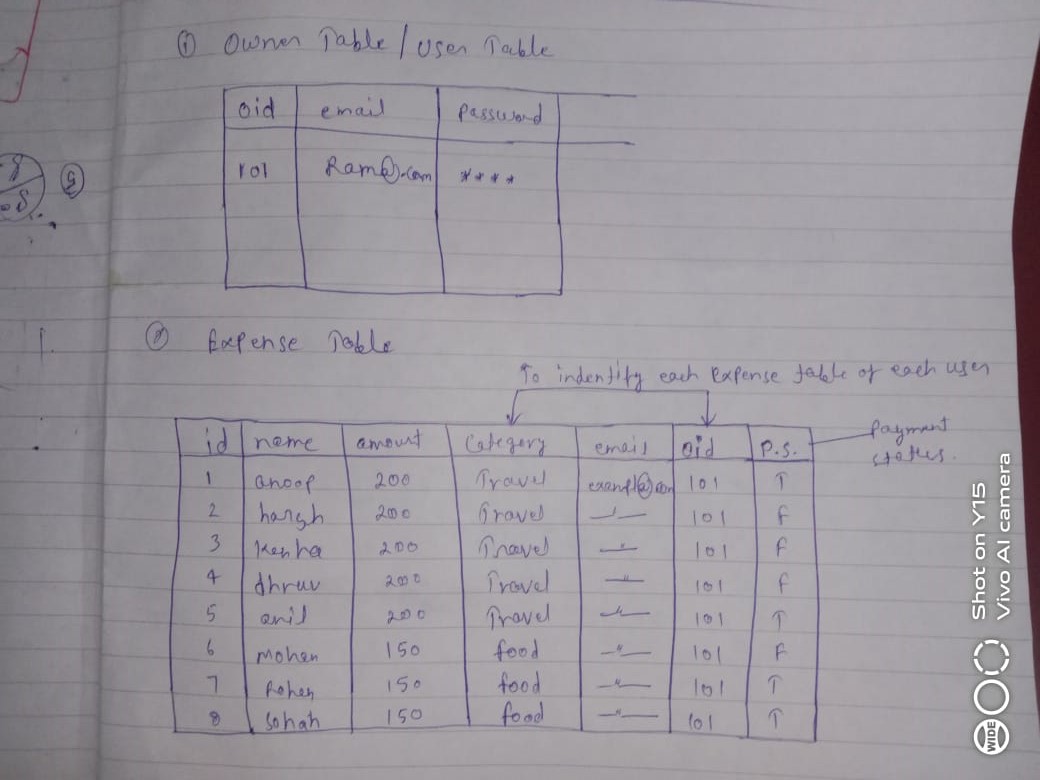 ① Owner Table / User Table
oid email password
101 Ram@.com ****
⑤
② Expense Table
To indentify each Expense table of each user
id name amount Category email oid P.S. Payment status.
1 anoop 200 Travel exampl@com 101 T
2 harsh 200 Travel —〃— 101 F
3 200 Travel —〃— 101 F
4 dhruv 200 Travel —〃— 101 F
5 anil 200 Travel —〃— 101 T
6 Mohan 150 food —〃— 101 F
7 Rohan 150 food —〃— 101 T
8 Sohan 150 food —〃— 101 T
Shot on Y15
Vivo AI camera
WIDE